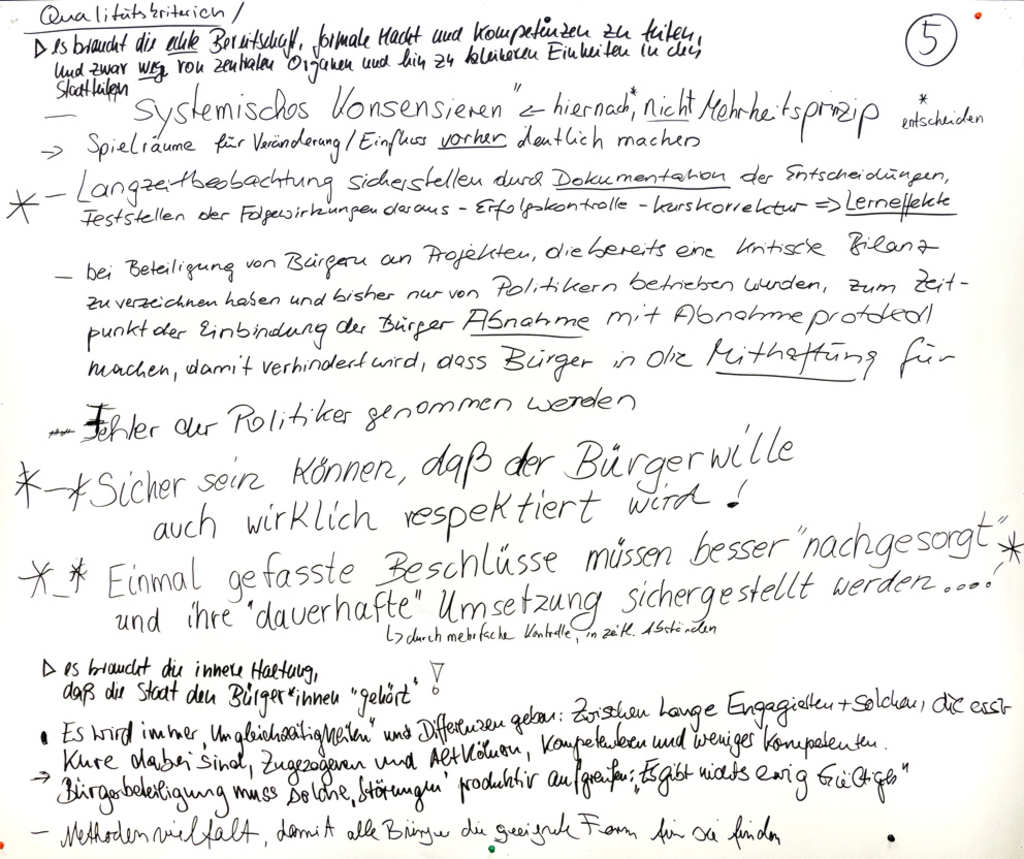 Qualitätskriterien /
5
▷ es braucht die echte Bereitschaft, formale Macht und Kompetenzen zu teilen,
und zwar weg von zentralen Organen und hin zu kleineren Einheiten in den
Stadtteilen
— systemisches Konsensieren" ← hiernach*, nicht Mehrheitsprinzip * entscheiden
→ Spielräume für Veränderung/Einfluss vorher deutlich machen
* – Langzeitbeobachtung sicherstellen durch Dokumentation der Entscheidungen,
Feststellen der Folgewirkungen daraus – Erfolgskontrolle – Kurskorrektur ⇒ Lerneffekte
– bei Beteiligung von Bürgern an Projekten, die bereits eine kritische Bilanz
zu verzeichnen haben und bisher nur von Politikern betrieben wurden, zum Zeit-
punkt der Einbindung der Bürger Abnahme mit Abnahmeprotokoll
machen, damit verhindert wird, dass Bürger in die Mithaftung für
Fehler der Politiker genommen werden
* – * Sicher sein können, daß der Bürgerwille
auch wirklich respektiert wird!
* – * Einmal gefasste Beschlüsse müssen besser "nachgesorgt" *
und ihre "dauerhafte" Umsetzung sichergestellt werden....!
↳ durch mehrfache Kontrolle, in zeitl. Abständen
▷ es braucht die innere Haltung,
daß die Stadt den Bürger*innen "gehört" !
• Es wird immer „Ungleichzeitigkeiten" und Differenzen geben: Zwischen Lange Engagierten + solchen, die erst
Kurz dabei sind, Zugezogenen und Altkölnern, Kompetenteren und weniger kompetenten.
→ Bürgerbeteiligung muss solche „Störungen" produktiv aufgreifen: „Es gibt nichts ewig Gültiges"
– Methodenvielfalt, damit alle Bürger die geeignete Form für sie finden